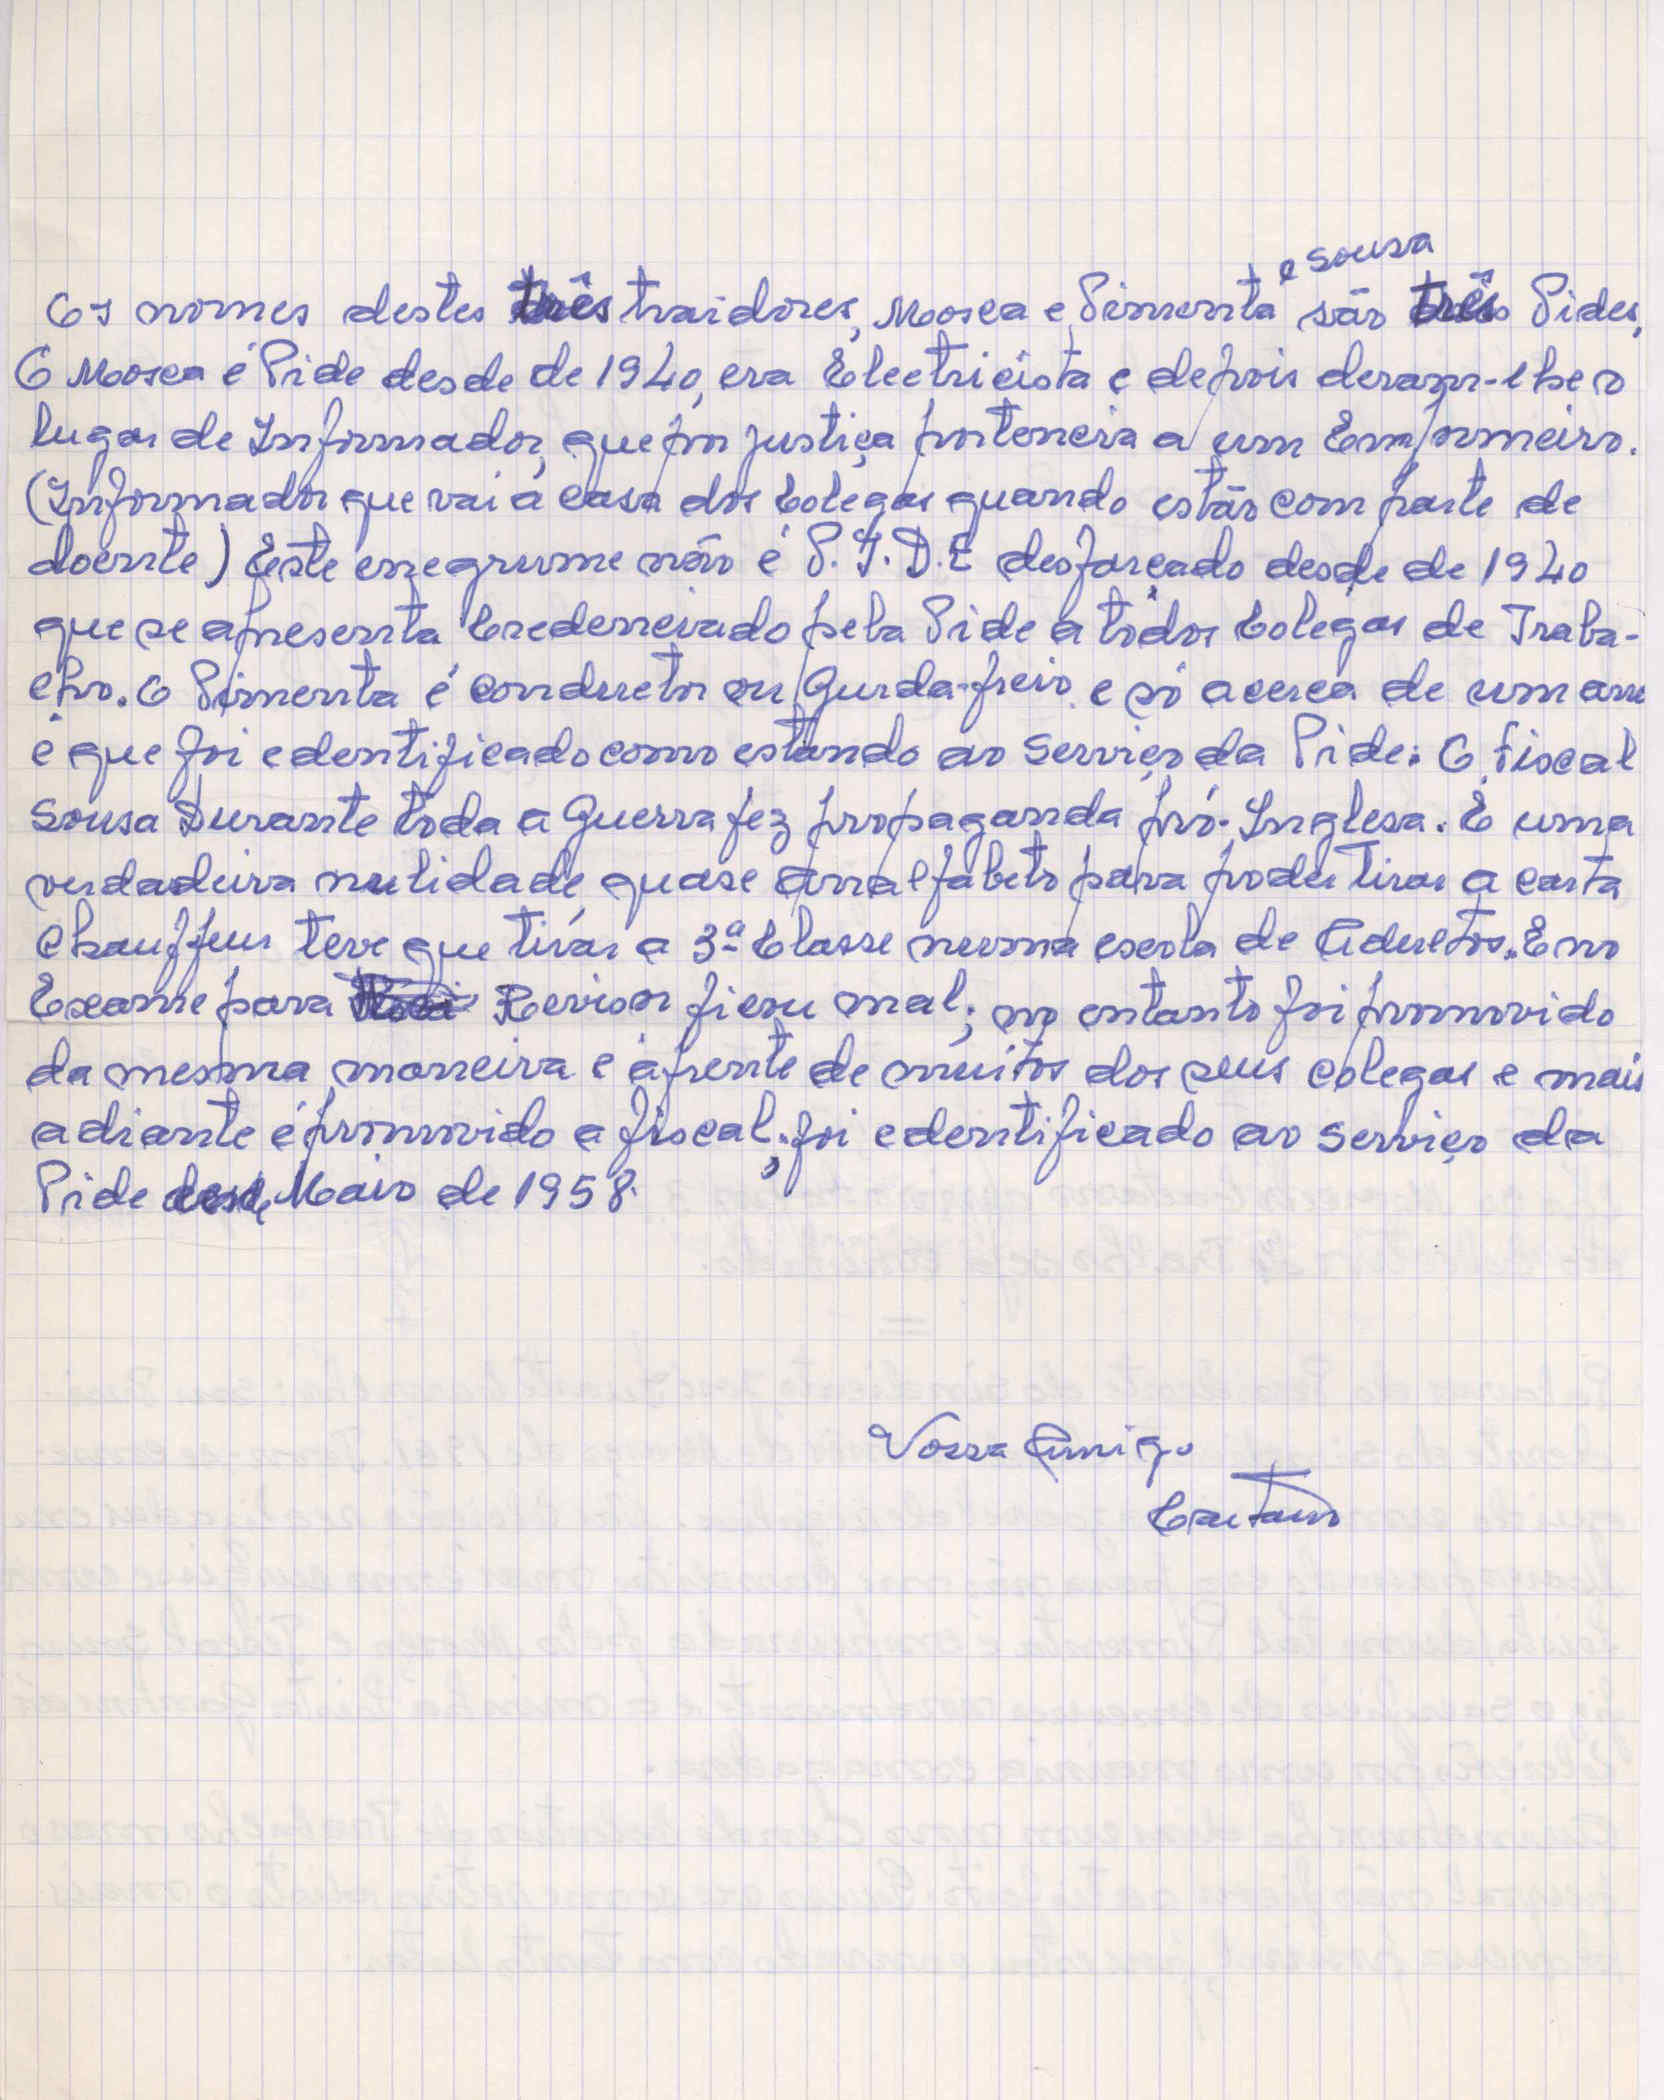 Os nomes destes três traidores, Mosca e Pimenta e Sousa são três Pides,
O Mosca é Pide desde de 1940, era Electricista e depois deram-lhe o
lugar de Informador, que por justiça portencia a um Emformeiro.
(Informador que vai á casa dos Colegas quando estão com parte de
doente) Este energrume não é P.I.D.E desfarcado desde de 1940
que se apresenta Credenciado pela Pide a tódos Colegas de Traba-
lho. O Pimenta é condutor ou Gurda-freio e só acerca de um ano
é que foi edentificado como estando ao Serviço da Pide. O fiscal
Sousa Durante toda a Guerra fez propaganda pró-Inglesa. É uma
verdadeira nulidade quase analfabeto para poder Tirar a carta
Chauffeur teve que tirár a 3ª Classe numa escola de Adultos. E no
Exame para Revisor ficou mal; no entanto foi promovido
da mesma maneira e á frente de muitos dos seus colegas e mais
adiante é promovido a fiscal; foi edentificado ao Serviço da
Pide desde Maio de 1958.
Vosso Amigo
Caetano